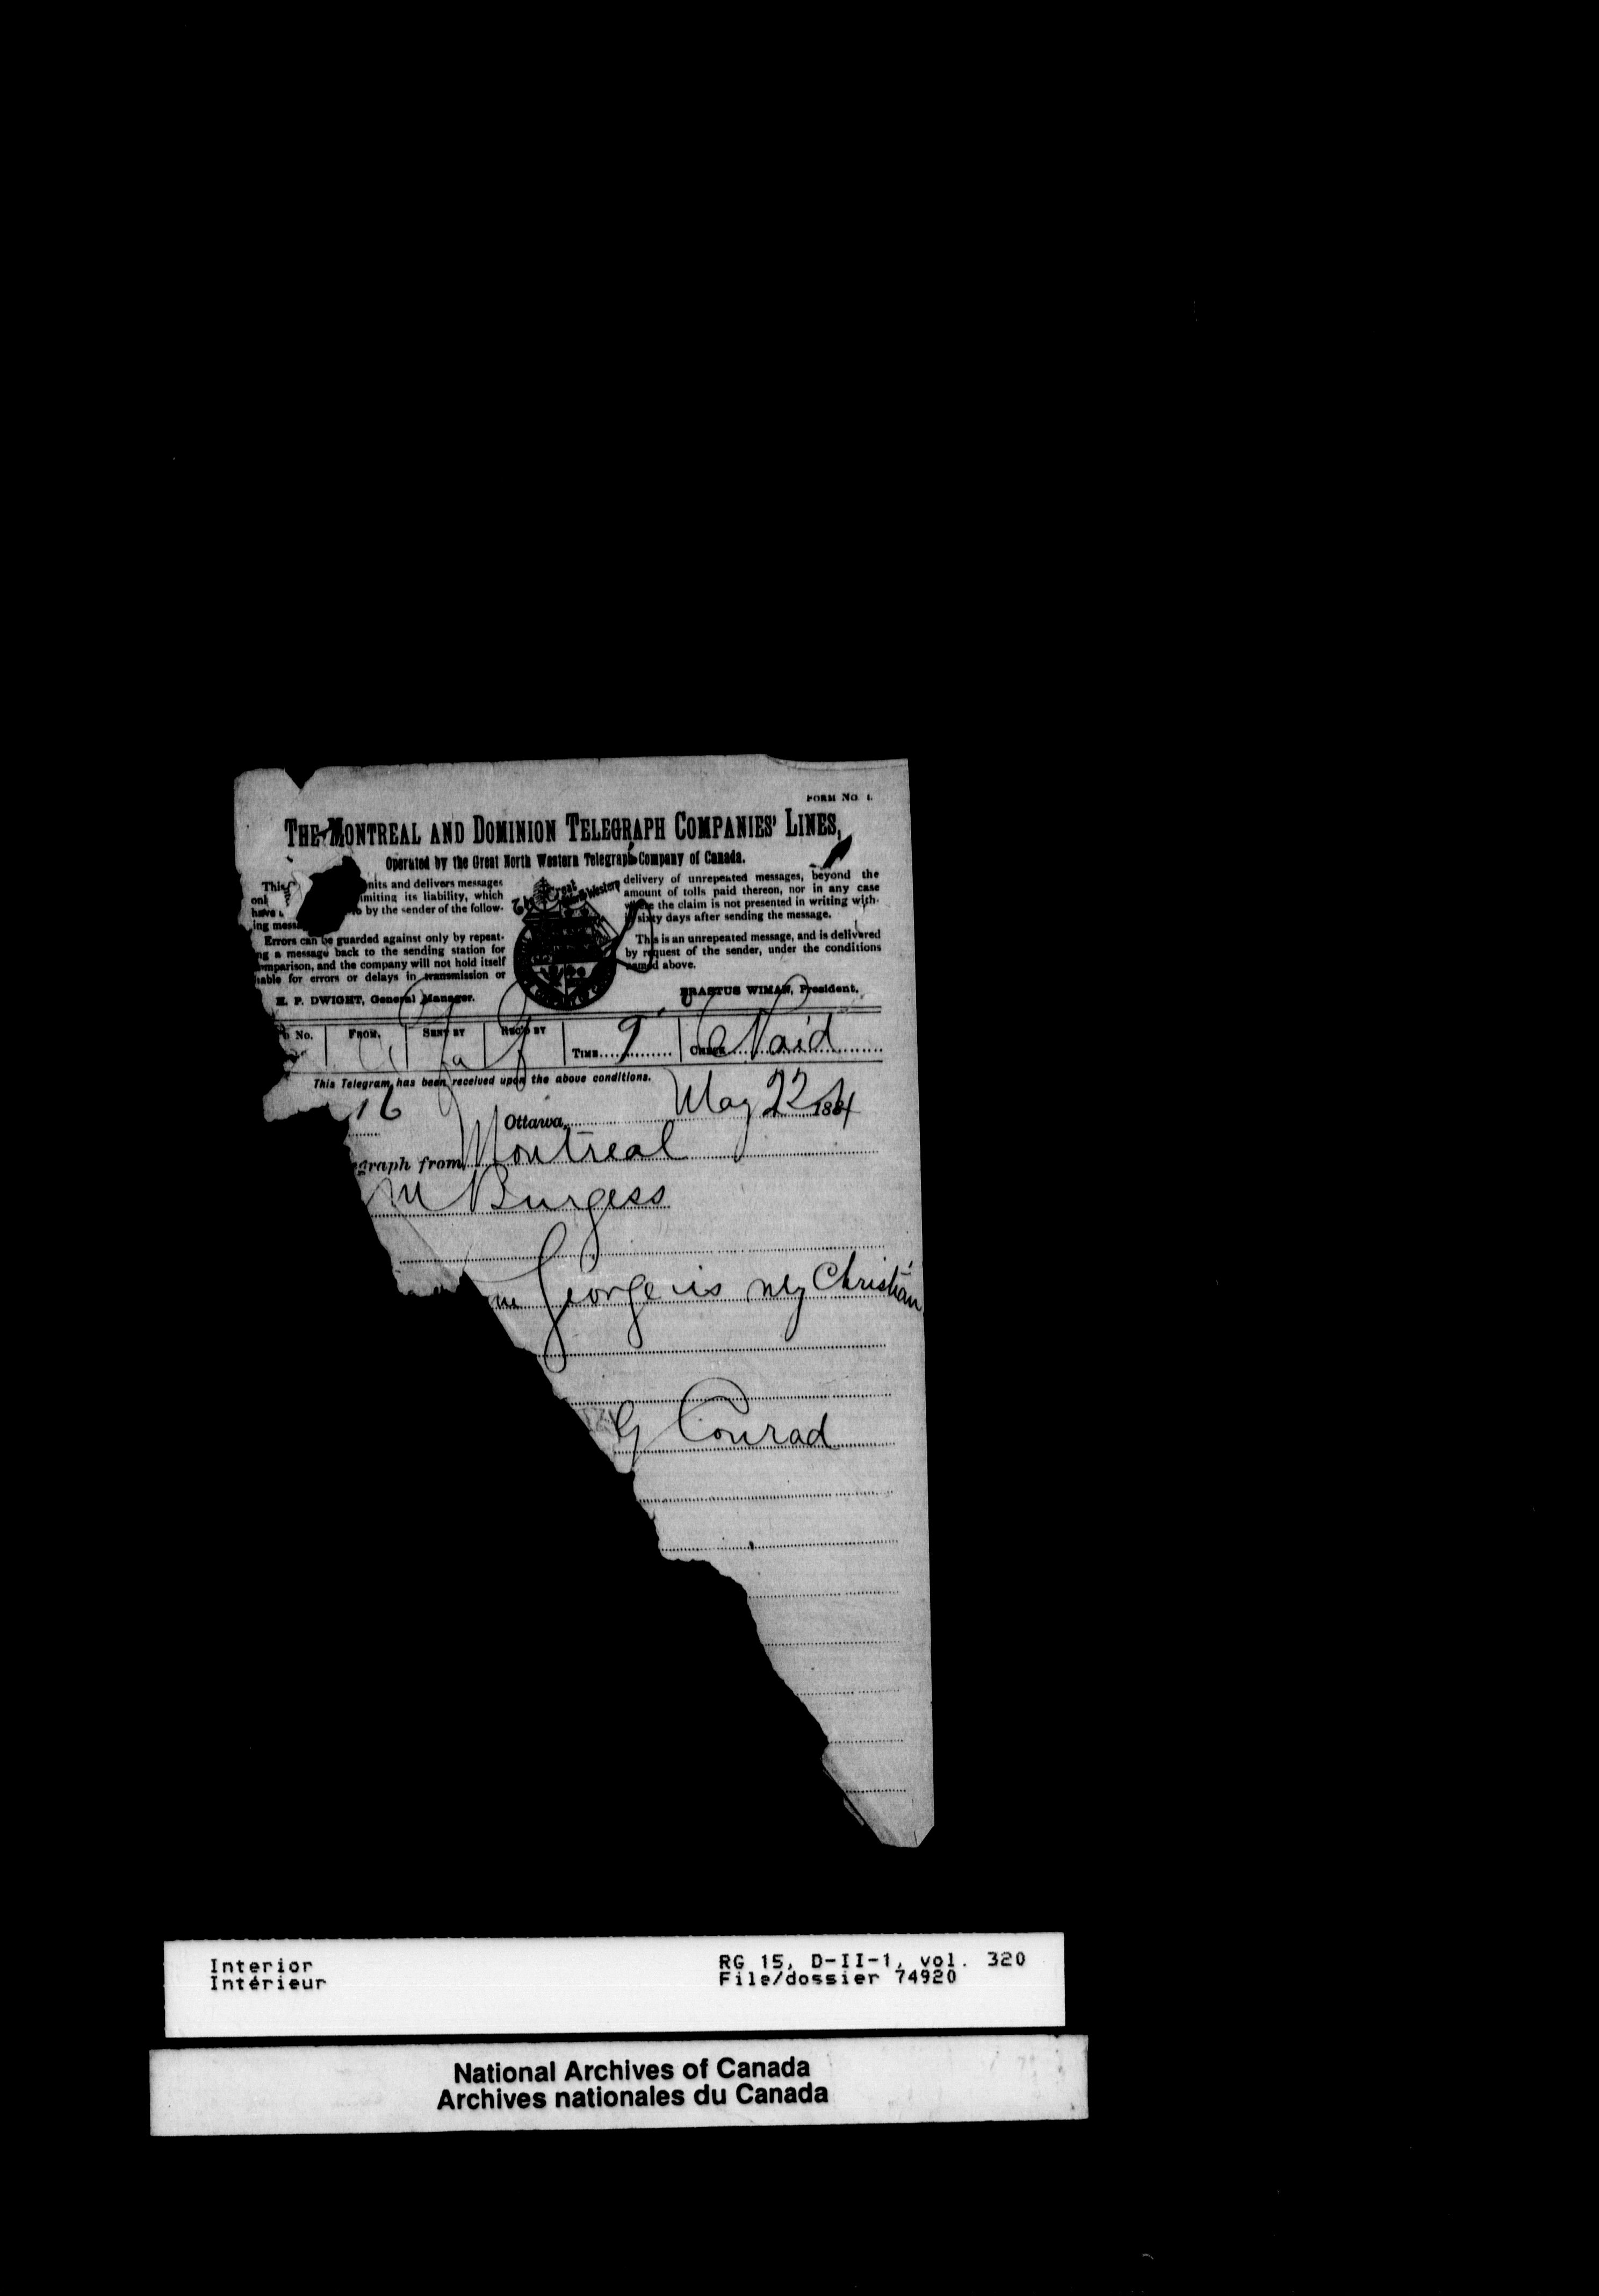 FORM NO 1.
THE MONTREAL AND DOMINION TELEGRAPH COMPANIES' LINES,
Operated by the Great North Western Telegraph Company of Canada.
This
nits and delivers messages
imiting its liability, which
have
by the sender of the follow-
ing mess
Errors can be guarded against only by repeat-
ng a message back to the sending station for
omparison, and the company will not hold itself
iable for errors or delays in transmission or
delivery of unrepeated messages, beyond the
amount of tolls paid thereon, nor in any case
where the claim is not presented in writing with-
sixty days after sending the message.
This is an unrepeated message, and is delivered
by request of the sender, under the conditions
named above.
H. P. DWIGHT, General Manager.
ERASTUS WIMAN, President.
No. FROM. SENT BY REC'D BY TIME 9 CHECK 6 Paid
This Telegram has been received upon the above conditions.
16
Ottawa, May 22 1884
graph from Montreal
M Burgess
George is my Christian
G Conrad
Interior
Intérieur
RG 15, D-II-1, vol. 320
File/dossier 74920
National Archives of Canada
Archives nationales du Canada